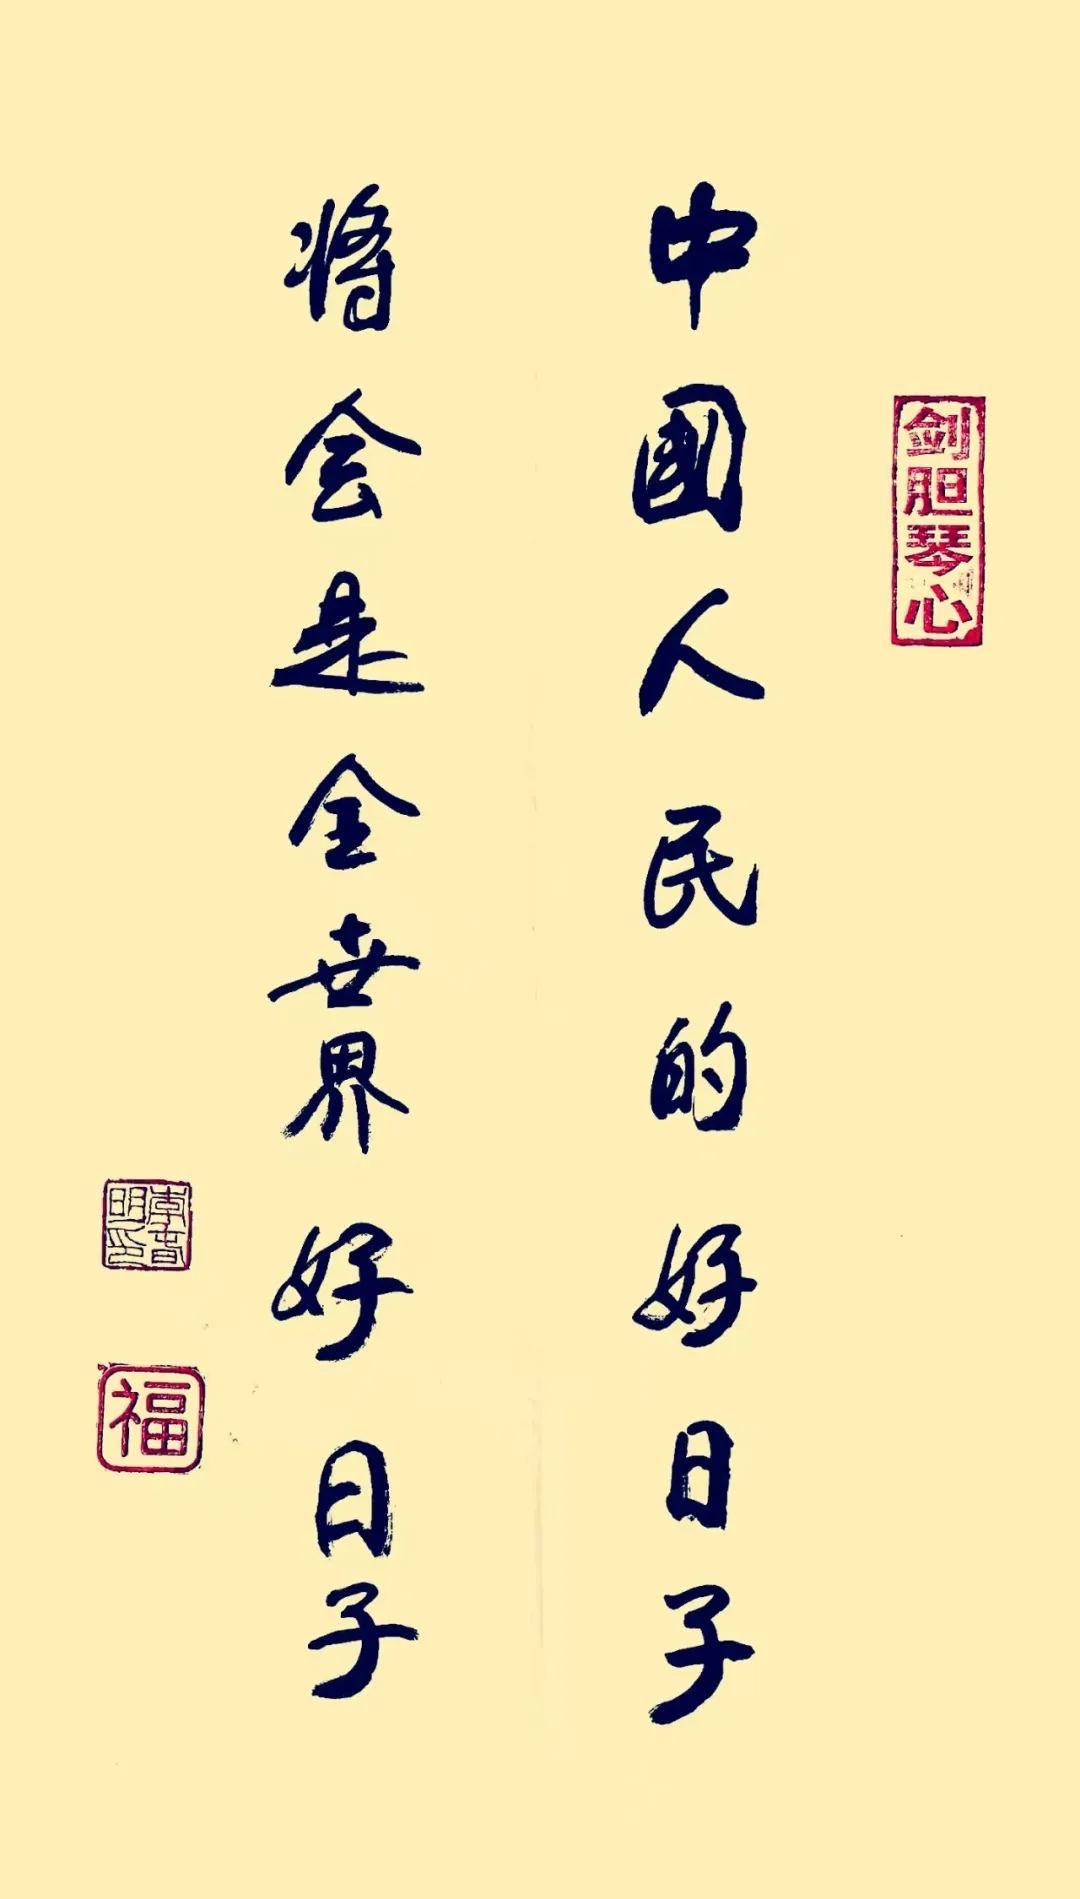 剑胆琴心
中國人民的好日子
将会是全世界好日子
福